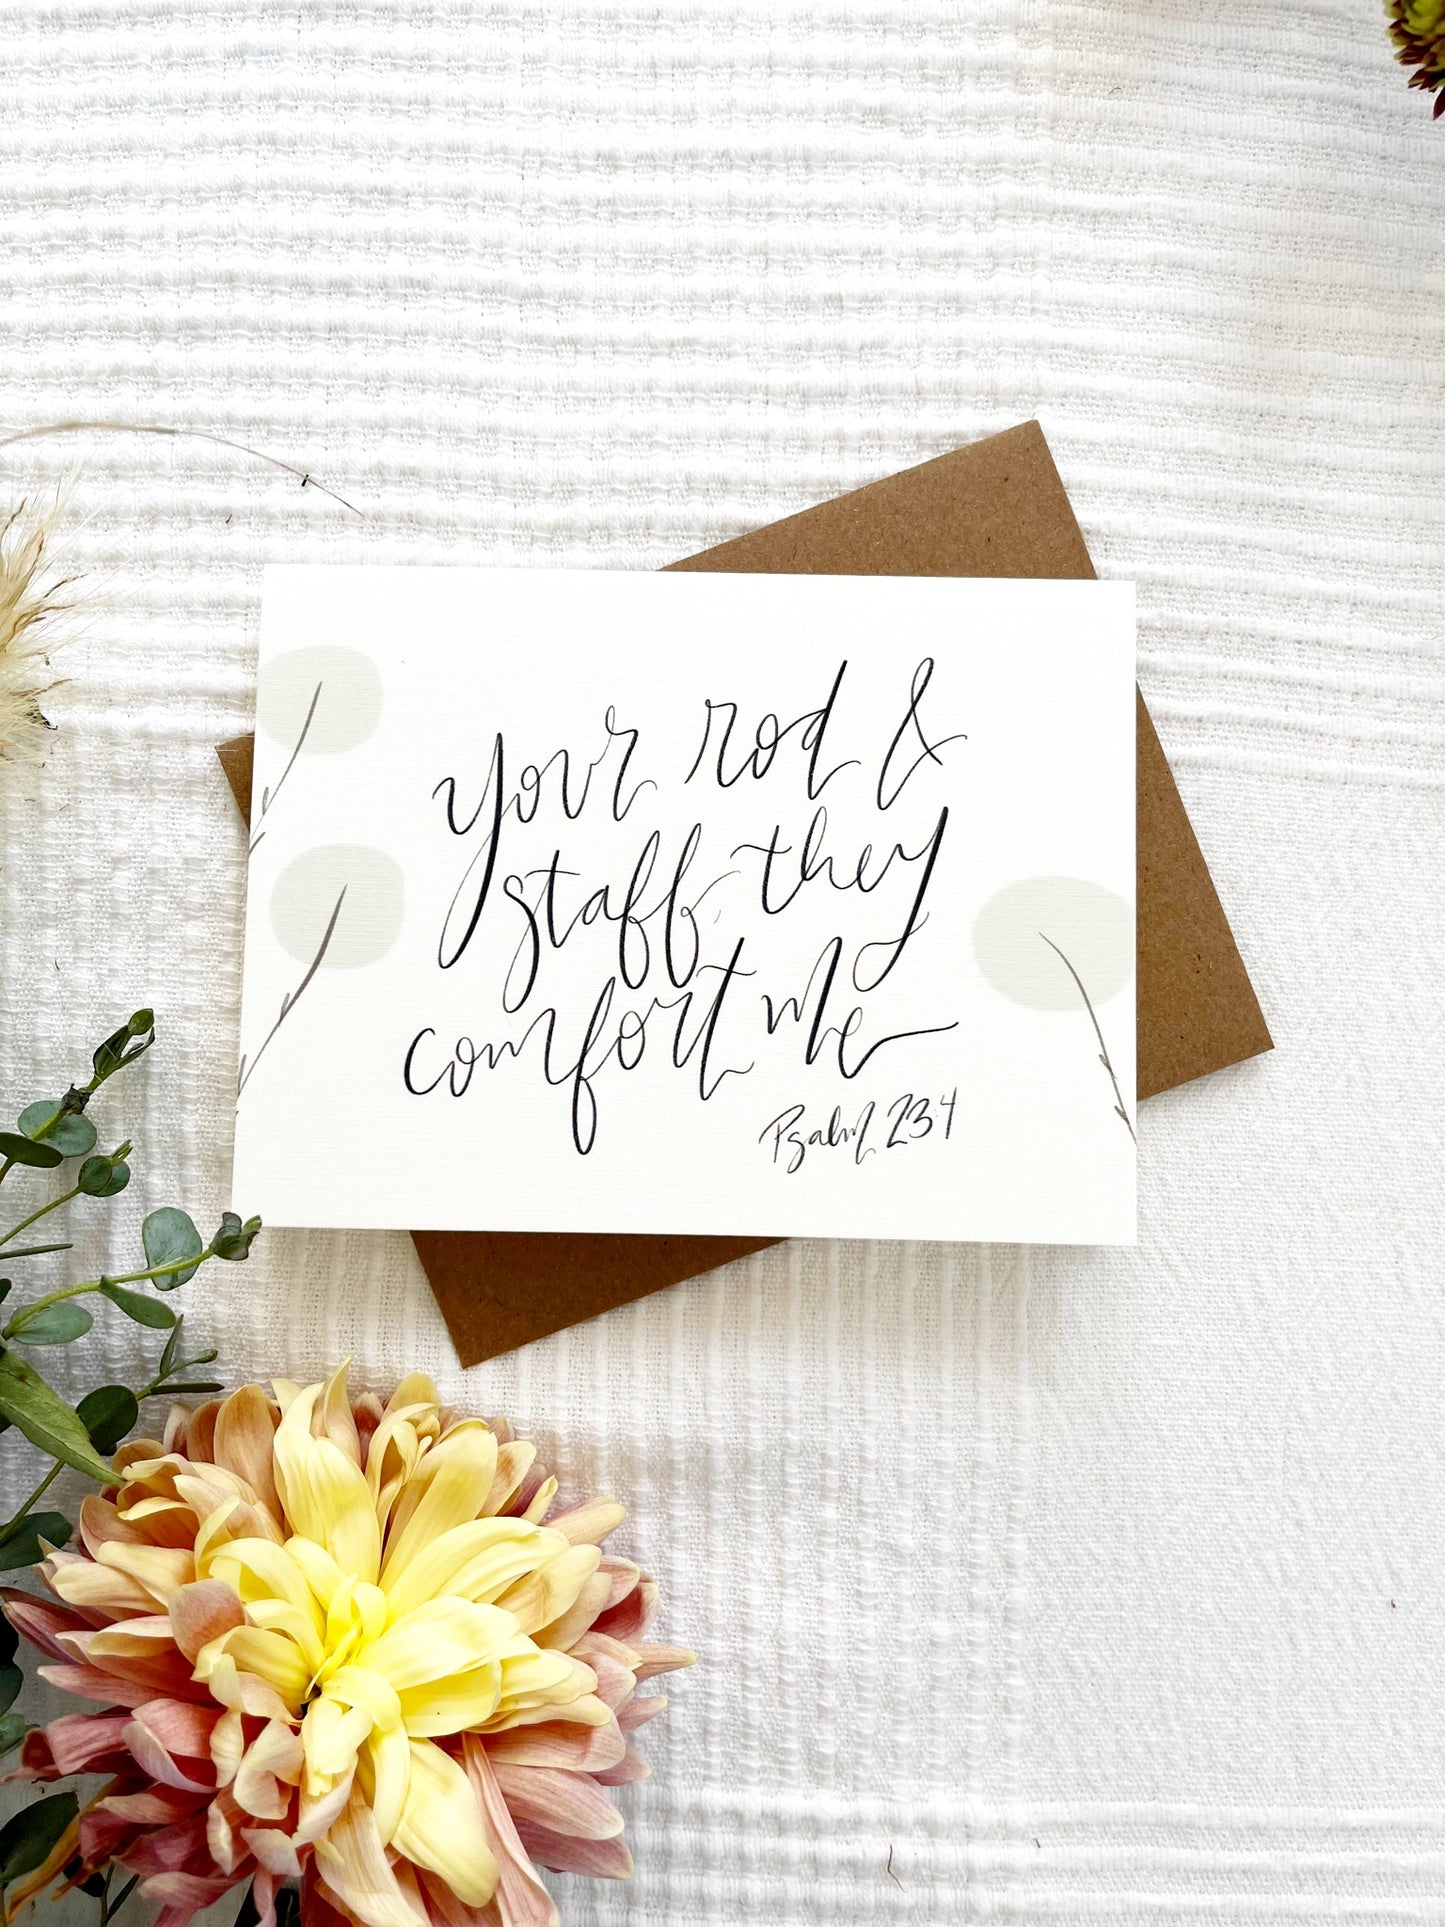 your rod &
staff, they
comfort me
Psalm 23:4